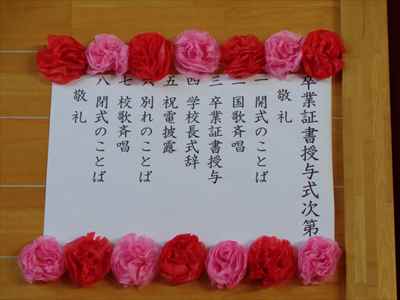 卒業証書授与式次第
敬礼
一 開式のことば
二 国歌斉唱
三 卒業証書授与
四 学校長式辞
五 祝電披露
六 別れのことば
七 校歌斉唱
八 閉式のことば
敬礼